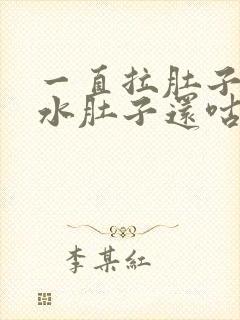 一直拉肚子
水肚子還咕
李某紅